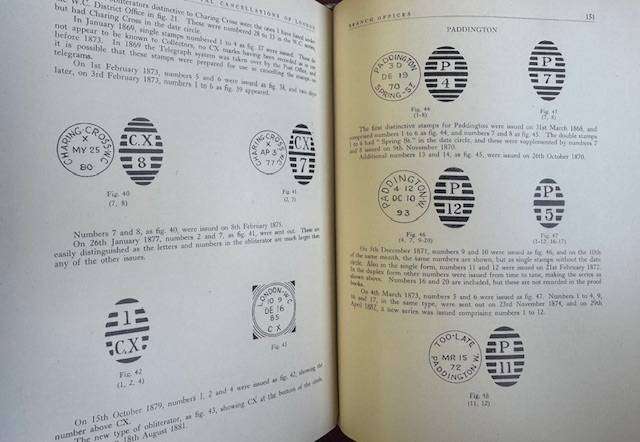 CANCELLATIONS OF LONDON
obliterators distinctive to Charing Cross were the ones I have listed under
W.C. District Office in fig. 21. These were numbered 28 to
but had Charing Cross in the date circle.
In January 1869, single stamps numbered 1 to 4 as fig. 37 were issued.
not appear to be known to Collectors, no CX marks having been recorded
before 1873. In 1869 the Telegraph system was taken over by the Post Office, and
it is possible that these stamps were prepared for use in cancelling the stamps on
telegrams.
On 1st February 1873, numbers 5 and 6 were issued as fig. 38, and two days
later, on 3rd February 1873, numbers 1 to 6 as fig. 39 appeared.
CHARING-CROSS
MY 25
80
CX
8
Fig. 40
(7, 8)
CHARING-CROSS
X
AP 3
77
CX
7
Fig. 41
(2, 7)
Numbers 7 and 8, as fig. 40, were issued on 8th February 1875.
On 26th January 1877, numbers 2 and 7, as fig. 41, were sent out. These are
easily distinguished as the letters and numbers in the obliterator are much larger than
any of the other issues.
1
C.X.
Fig. 42
(1, 2, 4)
LONDON-W.C
10 9
DE 16
85
C X
Fig. 43
On 15th October 1879, numbers 1, 2 and 4 were issued as fig. 42, showing the
number above CX.
The new type of obliterator, as fig. 43, showing CX at the bottom of the circle,
18th August 1881.
BRANCH OFFICES
151
PADDINGTON
PADDINGTON
3 D
DE 19
70
SPRING-ST
P
4
Fig. 44
(1-8)
P
7
Fig. 45
(7, 8)
The first distinctive stamps for Paddington were issued on 31st March 1868, and
comprised numbers 1 to 6 as fig. 44, and numbers 7 and 8 as fig. 45. The double stamps
1 to 6 had "Spring St." in the date circle, and these were supplemented by numbers 7
and 8 issued on 9th November 1870.
Additional numbers 13 and 14, as fig. 45, were issued on 26th October 1870.
PADDINGTON
4 12
DE 10
93
P
12
Fig. 46
(4, 7, 9-20)
P
5
Fig. 47
(1-12, 16-17)
On 5th December 1871, numbers 9 and 10 were issued as fig. 46, and on the 10th
of the same month, the same numbers are shown, but as single stamps without the date
circle. Also in the single form, numbers 11 and 12 were issued on 21st February 1872.
In the duplex form other numbers were issued from time to time, making the series as
shown above. Numbers 16 and 20 are included, but these are not recorded in the proof
books.
On 4th March 1873, numbers 5 and 6 were issued as fig. 47. Numbers 1 to 4, 9,
16 and 17, in the same type, were sent out on 23rd November 1874, and on 29th
April 1882, a new series was issued comprising numbers 1 to 12.
TOO-LATE
MR 15
72
PADDINGTON W.
P
11
Fig. 48
(11, 12)